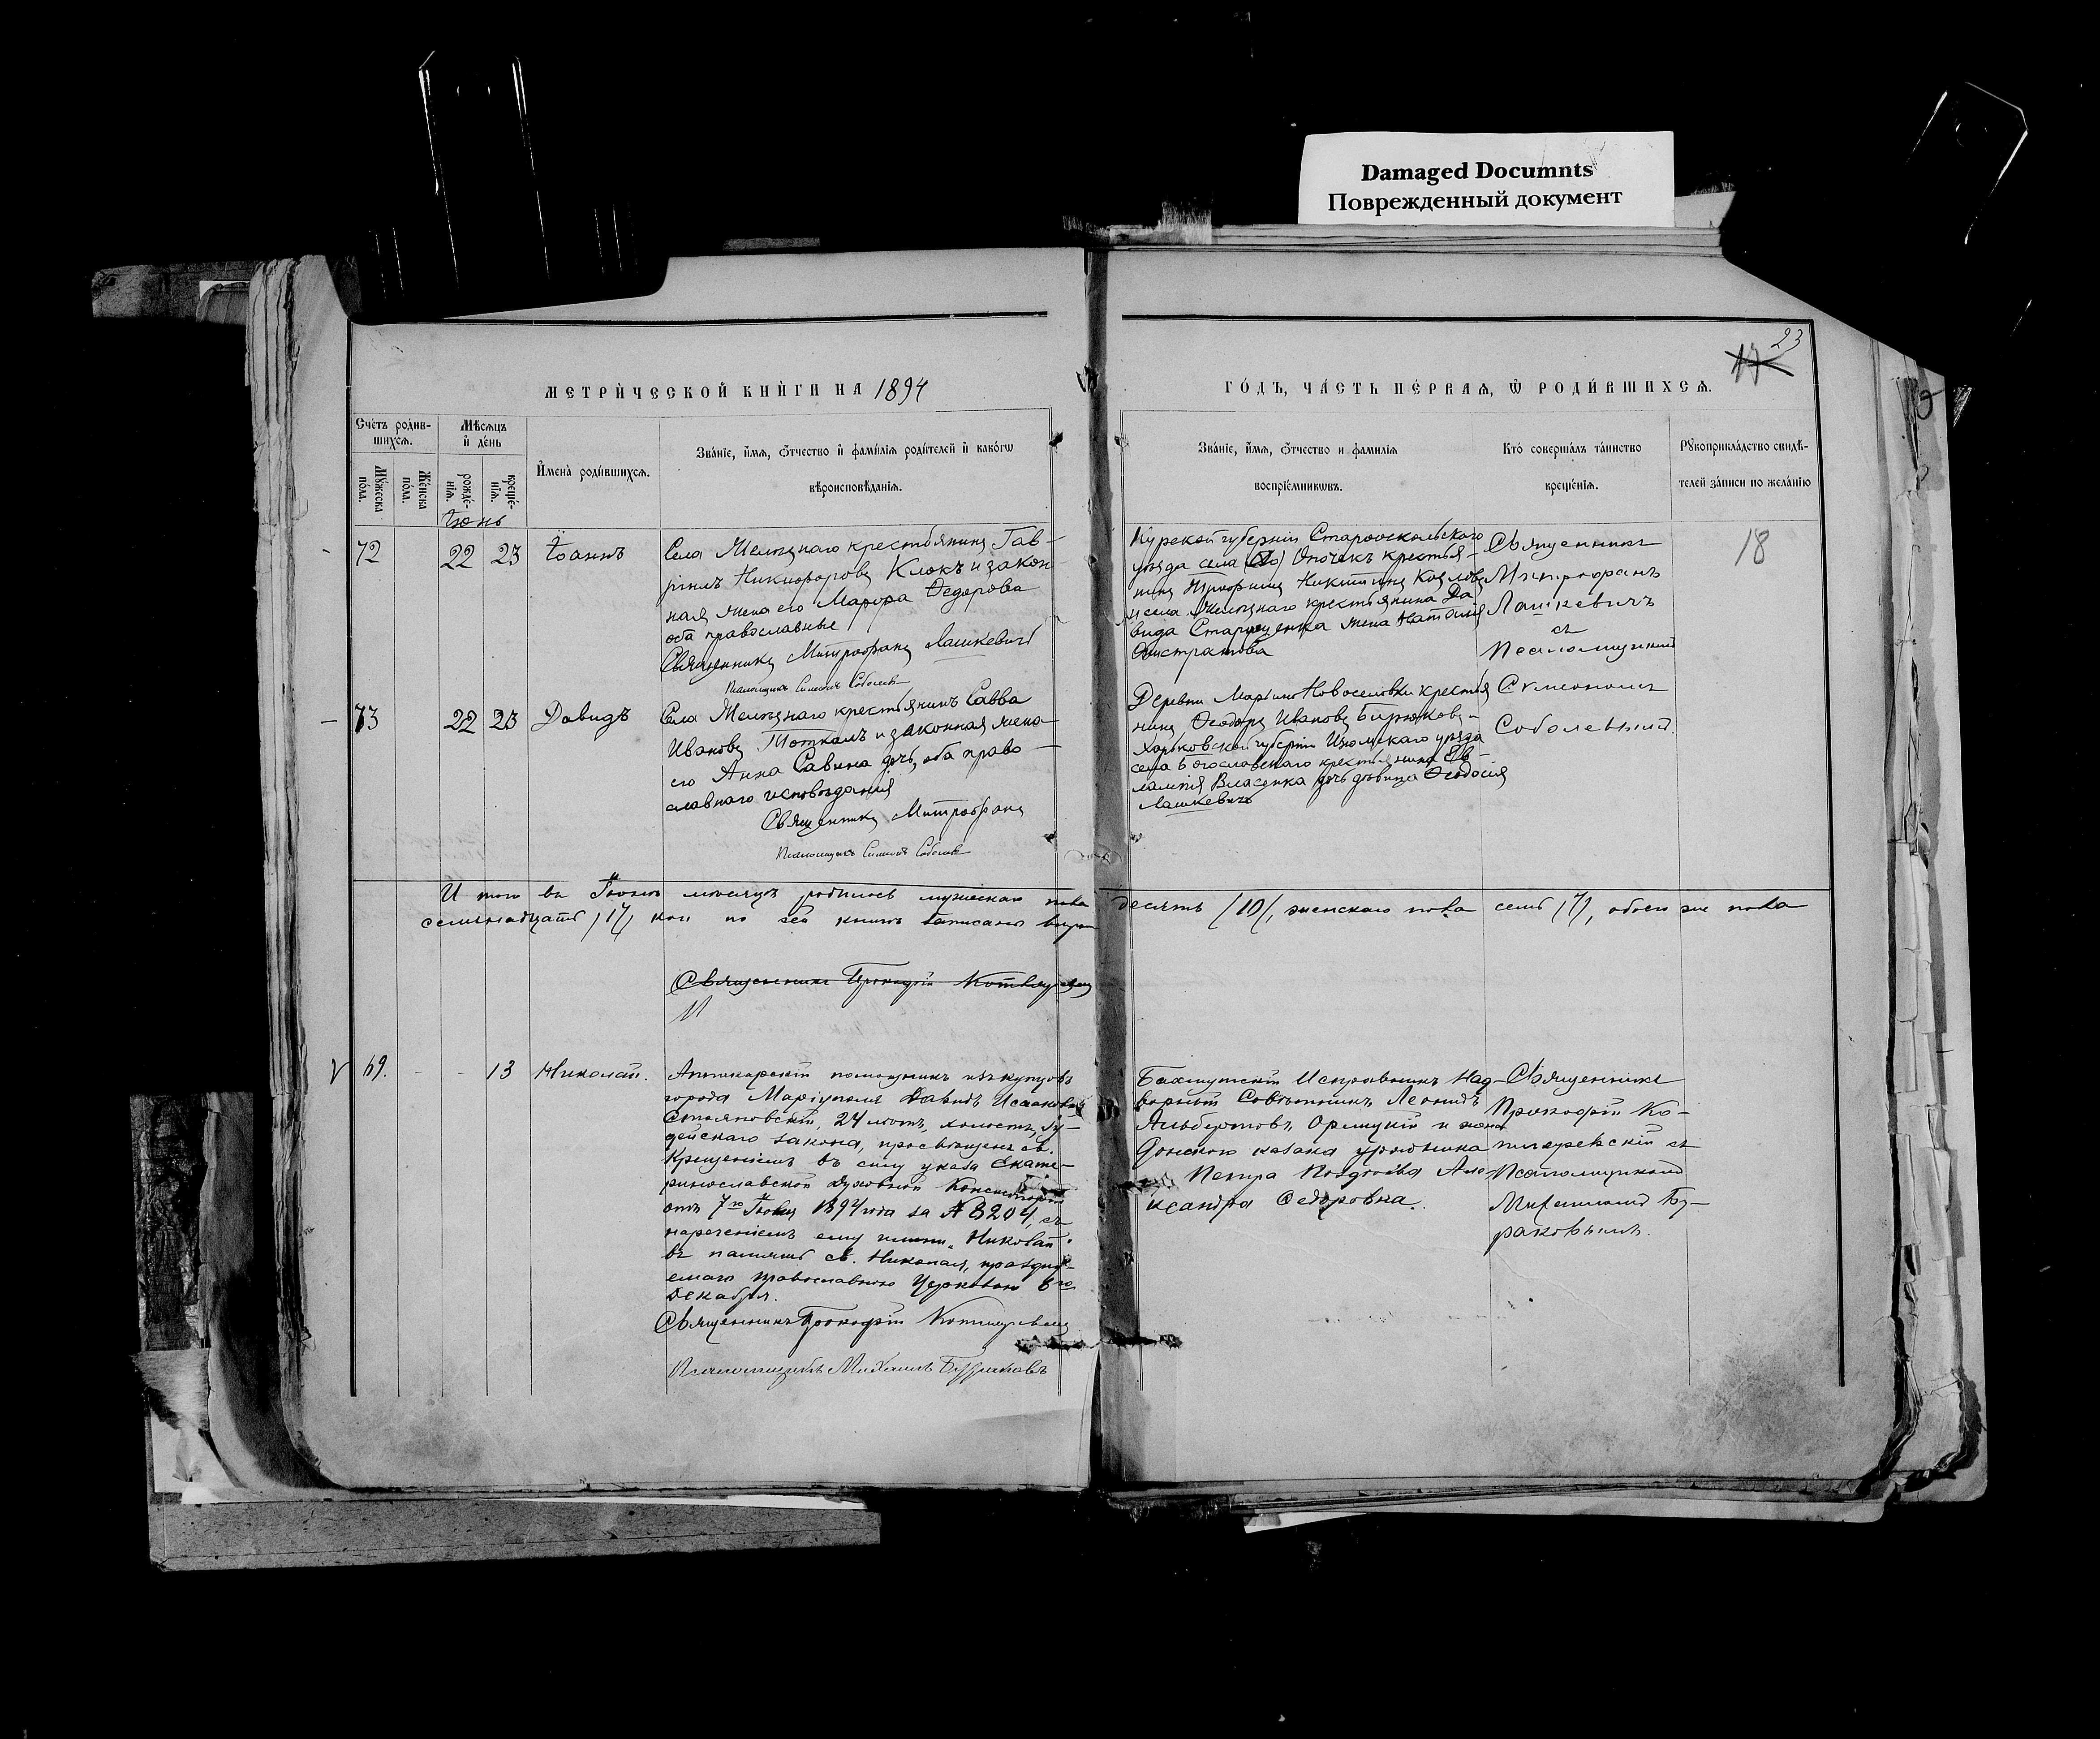 Damaged Documnts
Поврежденный документ
23
17
МЕТРИ́ЧЕСКОЙ КНИ́ГИ НА 1894
ГО́ДЪ, ЧА́СТЬ ПЕ́РВАЯ, Ѡ РОДИ́ВШИХСЯ.
Сче́тъ роди́в-
шихся.
Мѣ́сяцъ
и де́нь
Мꙋ́жеска
по́ла.
Же́нска
по́ла.
рожде́-
нїя.
креще́-
нїя.
И҆мена̀ роди́вшихся.
Зва́нїе, и҆́мя, ѻ҆́тчество и҆ фамі́лїя роди́телей и҆ како́гѡ
вѣроисповѣ́данїя.
Зва́нїе, и҆́мя, ѻ҆́тчество и фами́лїя
воспрїе́мникѡвъ.
Кто̀ соверша́лъ та́инство
креще́нїя.
Рꙋкоприкла́дство свидѣ́-
телей за́писи по жела́нїю
Іюнь
72 22 23 Іоаннъ
Села Желѣзнаго крестьянинъ Гав-
ріилъ Никифоровъ Клокъ и закон-
ная жена его Марфа Федорова
оба православные
Священникъ Митрофанъ Лашкевичъ
Псаломщикъ Симеонъ Соболевъ
Курской губерніи Старооскольского
уѣзда села Опочекъ крестья-
нинъ Никитинъ Козловъ
и села Желѣзнаго крестьянина Да
вида Старченка жена Наталія
Священникъ
Митрофанъ
Лашкевичъ
съ
Псаломщикомъ
Сѵмеономъ
Соболевымъ.
18
73 22 23 Давидъ
Села Желѣзнаго крестьянинъ Савва
Ивановъ и законная жена
его Анна Савина дочь, оба право-
славнаго исповѣданія
Священникъ Митрофанъ
Псаломщикъ Симеонъ Соболевъ
Деревни Марьино Новоселовки крестья
нинъ Ѳеодоръ Ивановъ Бирюковъ и
Харьковской губерніи Изюмскаго уѣзда
села Богославскаго крестьянина Ев-
лампія Власенка дочь дѣвица Ѳеодосія
Лашкевичъ
И того въ Іюнѣ мѣсяцѣ родилось мужескаго пола десять /10/, женскаго пола семь /7/, обоего же пола
семнадцать /17/ кои по сей книгѣ записаны вѣрно
Священникъ Прокофій Котляревскій
69. - - 13 Николай.
Аптекарскій помощникъ изъ купцовъ
города Маріуполя Давидъ Исааковъ
24 лѣтъ, холостъ, іу-
дейскаго закона, просвѣщенъ св.
Крещеніемъ въ силу указа Екате-
ринославской Духовной Консисторіи
отъ 7го Іюня 1894 года за № 8204, съ
нареченіемъ ему имени „Николай"
въ память св. Николая, праздну-
емаго православною Церковью 6го
Декабря.
Священникъ Прокофій Котляревскій
Псаломщикъ Михаилъ Бураковъ
Бахмутскій Исправникъ Над-
ворный Совѣтникъ Леонидъ
Альбертовъ и жена
Донского казака урядника
Петра Поздѣева Але-
ксандра Федоровна.
Священникъ
Прокофій Ко-
тляревскій съ
Псаломщикомъ
Михаиломъ Бу-
раковымъ.